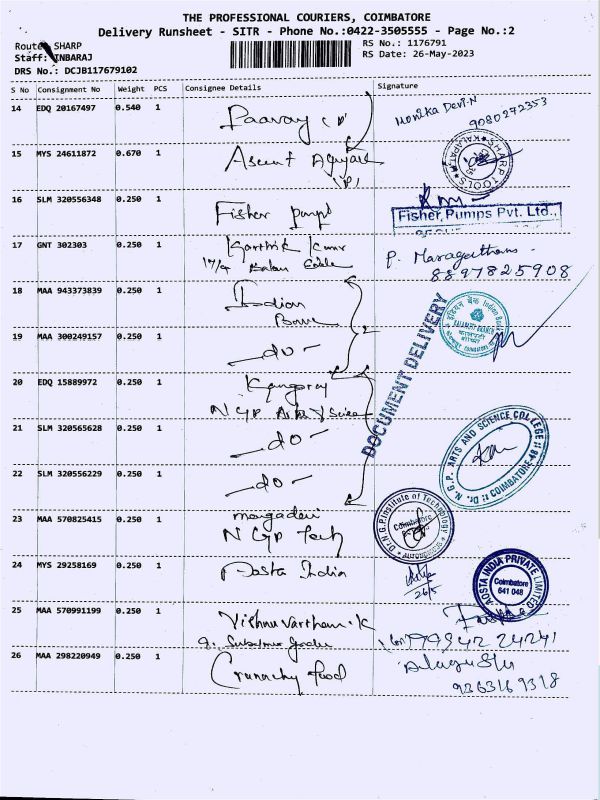 THE PROFESSIONAL COURIERS, COIMBATORE
Delivery Runsheet - SITR - Phone No.:0422-3505555 - Page No.:2
Route: SHARP
Staff: INBARAJ
DRS No.: DCJB117679102
RS No.: 1176791
RS Date: 26-May-2023
S No Consignment No Weight PCS Consignee Details Signature
14 EDQ 20167497 0.540 1 Monika Devi.N
9080272353
15 MYS 24611872 0.670 1
SHARP TOOLS KALAPATTI
16 SLM 320556348 0.250 1 Fisher pump
Fisher Pumps Pvt. Ltd.,
17 GNT 302303 0.250 1 Karthik Kumar
P. Maragatham
8897825908
18 MAA 943373839 0.250 1 Indian
Bank
19 MAA 300249157 0.250 1 -do-
2
DOCUMENT DELIVERY
20 EDQ 15889972 0.250 1
N G P Arts & Science
21 SLM 320565628 0.250 1 -do-
Dr. N. G. P. ARTS AND SCIENCE COLLEGE
COIMBATORE-48
22 SLM 320556229 0.250 1 -do-
23 MAA 570825415 0.250 1 mangadevi
N G P Tech
Dr. N.G.P. Institute of Technology
Coimbatore
24 MYS 29258169 0.250 1 Aosta India
26/5
AOSTA INDIA PRIVATE LIMITED
Coimbatore
641 048
25 MAA 570991199 0.250 1 Vishnu Varthan.K
9994224241
26 MAA 298220949 0.250 1 Crunchy food
9363169318